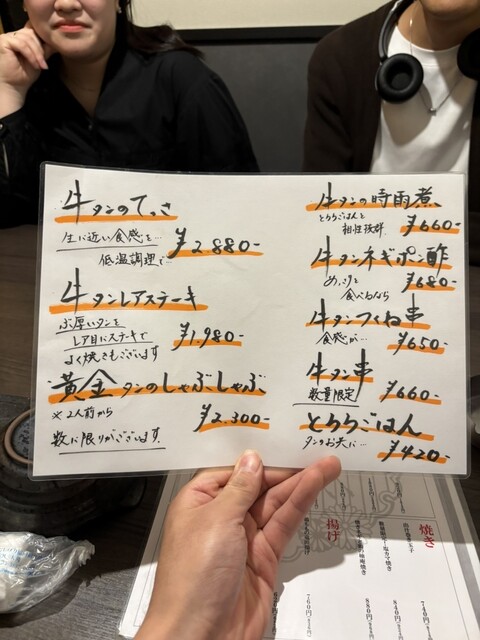 牛タンのてっさ
生に近い食感を…
低温調理で…
¥2.880-
牛タンレアステーキ
ぶ厚いタンを
レア目にステキで
よく焼きもございます
¥1.980-
黄金タンのしゃぶしゃぶ
※2人前から
¥2.300-
数に限りがございます.
牛タンの時雨煮
とろろごはんと
相性抜群
¥660-
牛タンネギポン酢
めっさりと
食べるなら
¥680-
牛タンつくね串
食感が…
¥650-
牛タン串
数量限定
¥660-
とろろごはん
タンのお供に…
¥420-
焼き
揚げ
740円
840円
880円
760円